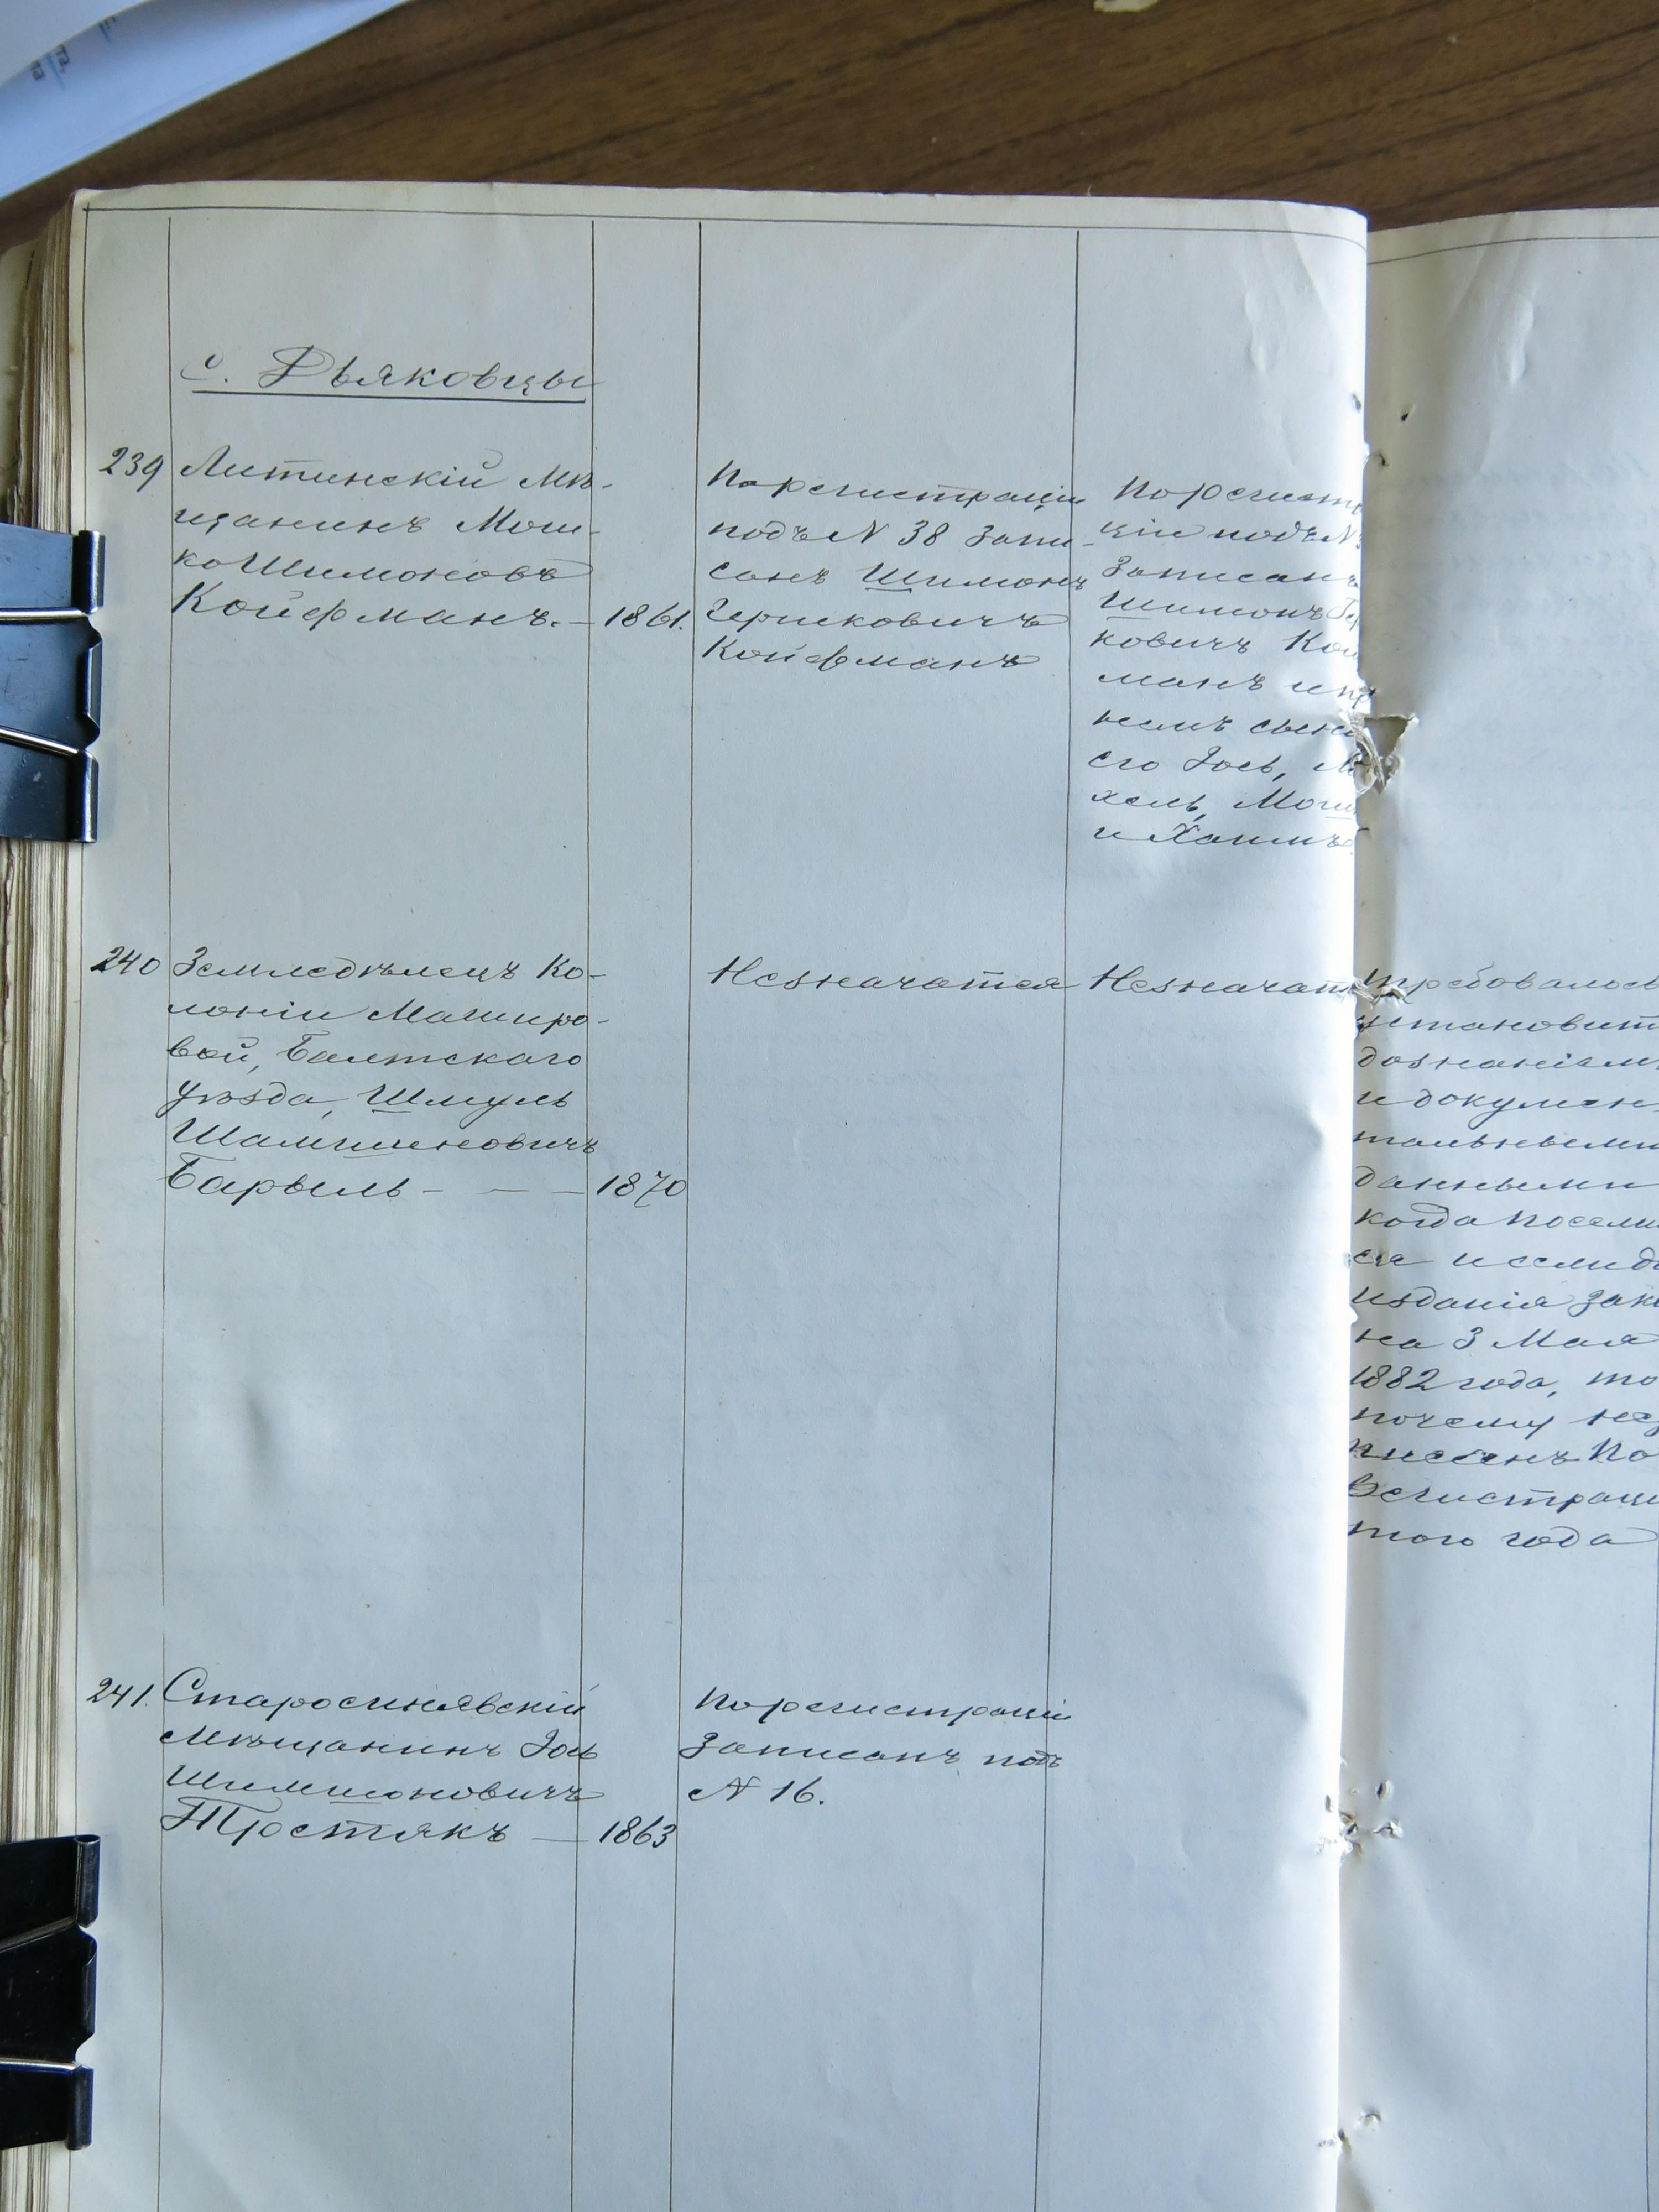 с. Дьяковцы
239 Литинскій Мѣ-
щанинъ Мош-
ко Шимоновъ
Койфманъ. — 1861.
По регистраціи
подъ N 38 запи-
санъ Шимонъ
Гершковичъ
Койфманъ
По регист
ціи подъ N
записанъ
Шимонъ Гер
ковичъ Кой
манъ и пр
немъ сыно
его Іось, М
хель, Мош
и Хаимъ.
240 Земледѣлецъ Ко-
лоніи Маширо-
вой, Балтскаго
уѣзда, Шмуль
Шамшеновичъ
Барвель — — 1870
Незначатся
Незначат
требовалось
установит
дознаніем
и докумен
тальными
данными
когда посели
ся и если д
изданія зак
на 3 Мая
1882 года, то
почему не
писанъ по
регистрац
того года
241. Старосинявскій
Мѣщанинъ Іось
Шимшоновичъ
Тростякъ — 1863
По регистраціи
записанъ подъ
N 16.